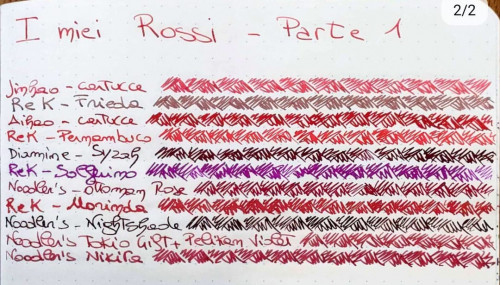 2/2
I miei Rossi - Parte 1
Jinhao - cartucce
ReK - Frieda
Aihao - cartucce
ReK - Pernambuco
Diamine - Syrah
ReK - Solferino
Noodler's - Ottoman Rose
ReK - Morinda
Noodler's - Nightshade
Noodler's Tokio Gift + Pelikan Violet
Noodler's Nikita